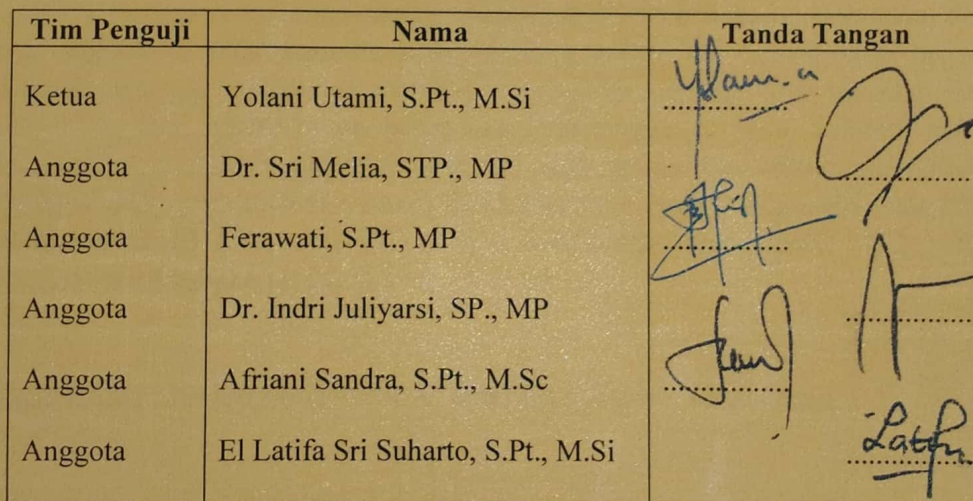 Tim Penguji Nama Tanda Tangan
Ketua Yolani Utami, S.Pt., M.Si
Anggota Dr. Sri Melia, STP., MP
Anggota Ferawati, S.Pt., MP
Anggota Dr. Indri Juliyarsi, SP., MP
Anggota Afriani Sandra, S.Pt., M.Sc
Anggota El Latifa Sri Suharto, S.Pt., M.Si